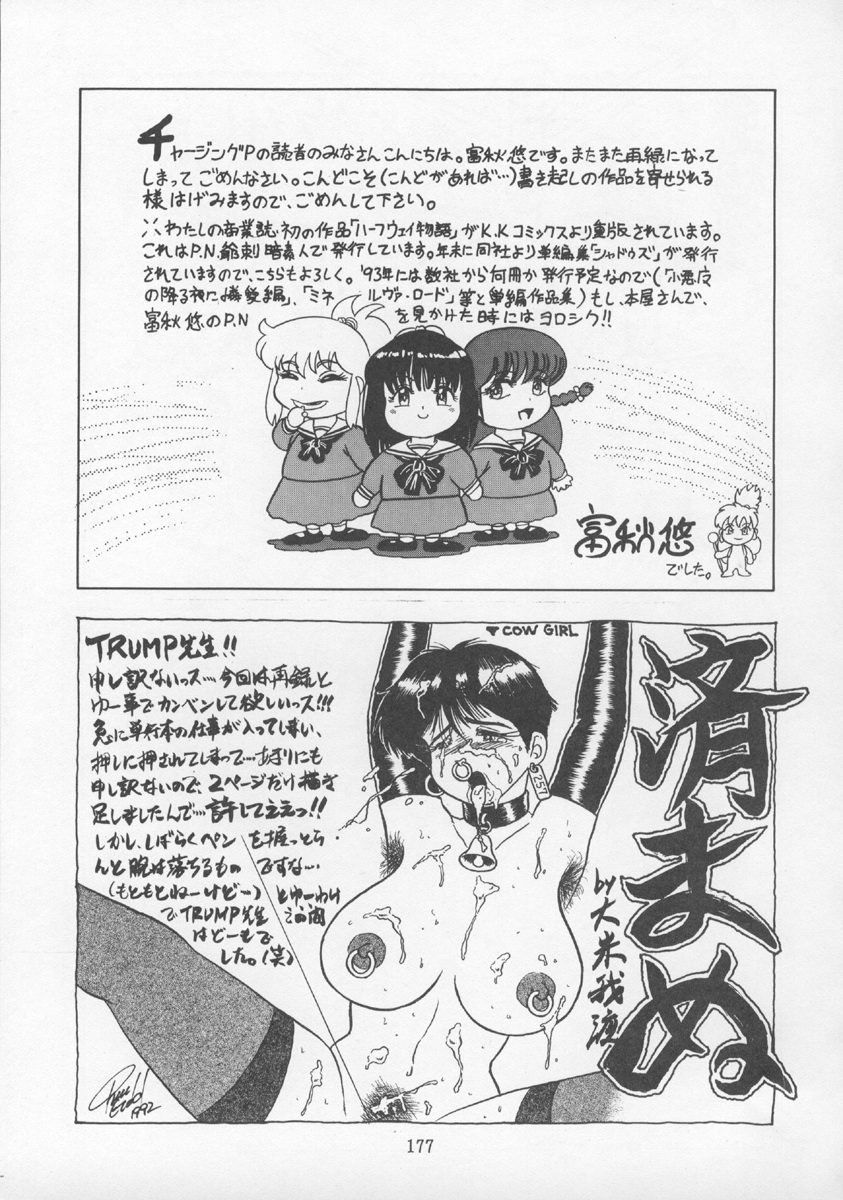 チャージングPの読者のみなさんこんにちは。富秋悠です。またまた再録になって
しまってごめんなさい。こんどこそ(こんどがあれば…)書き起しの作品を寄せられる
様はげみますので、ごめんして下さい。
※わたしの商業誌・初の作品「ハーフウェイ物語」がK.Kコミックスより重版されています。
これはP.N.爺刺 暗素人で発行しています。年末に同社より単編集「シャドウズ」が発行
されていますので、こちらもよろしく。'93年には数社から何冊か発行予定なので(「小悪魔
の降る夜に」、「ミネルヴァ・ロード」等と単編作品集)もし、本屋さんで、
富秋悠のP.Nを見かけた時にはヨロシク!!
富秋悠
でした。
TRUMP先生!!
申し訳ないっス…今回は再録と
ゆー事でカンベンして欲しいっス!!!
急に単行本の仕事が入ってしまい、
押しに押されてしまって…あまりにも
申し訳ないので、2ページだけ描き
足しましたんで…許してえぇっ!!
しかし、しばらくペンを握っとら
んと腕は落ちるものですな…
(もともとねーけど…)とゆーわけ
でTRUMP先生
はどーもで
した。(笑)
COW GIRL
257
済まぬ
by大朱我渡
1992
177